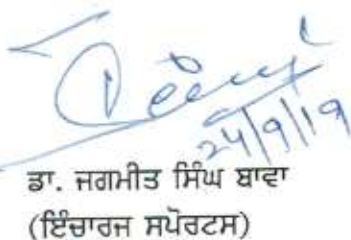 24/9/19
ਡਾ. ਜਗਮੀਤ ਸਿੰਘ ਬਾਵਾ
(ਇੰਚਾਰਜ ਸਪੋਰਟਸ)